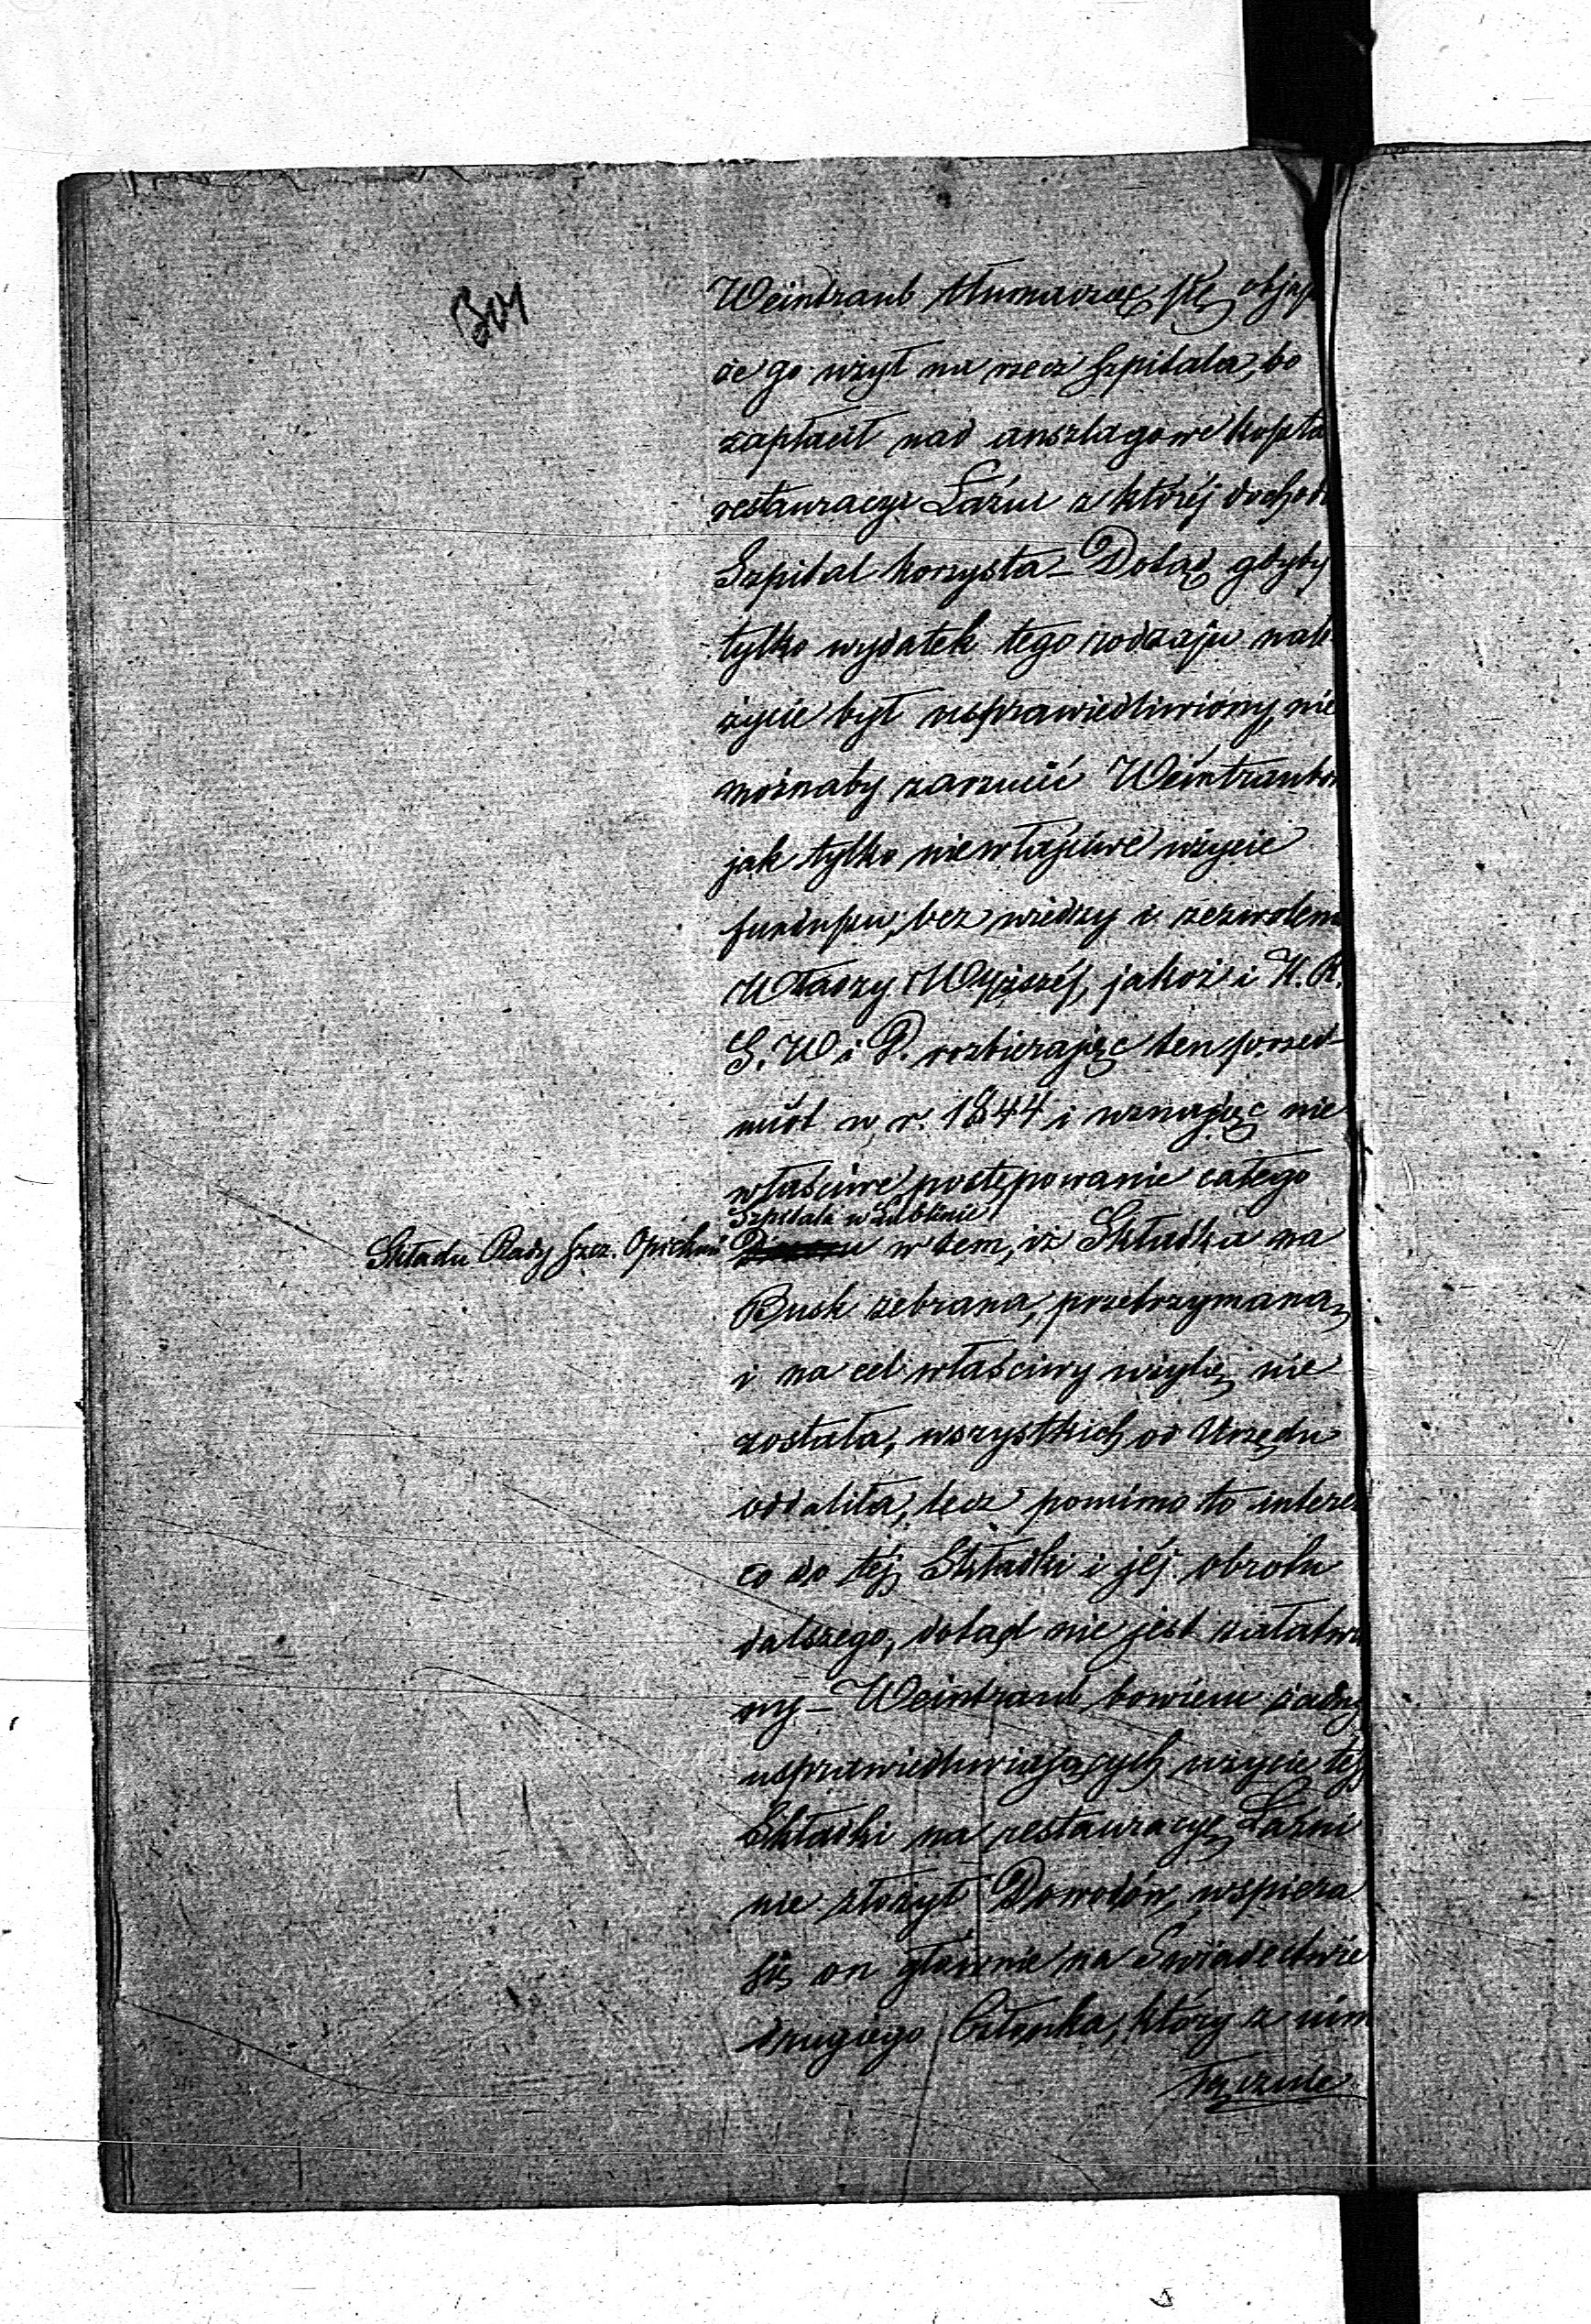 301
Weintraub tłumacząc się objaś
że go użył na rzecz Szpitala, bo
zapłacił nad anszlagowe koszta
restauracyi Łaźni z któréj dochodu
Szpital korzysta – Dotąd gdyby
tylko wydatek tego rodzaju nale
życie był usprawiedliwiony, nie
możnaby zarzucić Weintraubo
jak tylko niewłaściwe użycie
funduszu, bez wiedzy i zezwoleni
Władzy Wyższéj, jakoż i K. R.
S. W i D. rozbierając ten przed-
miot w r. 1844 i uznając nie
właściwe postępowanie całego
Szpitala w Lublinie
Składu Rady Szcz. Opiekuń w tem, iż Składka na
Busk zebrana, przetrzymaną
i na cel właściwy użytą nie
została, wszystkich od Urzędu
oddaliła, lecz pomimo to interes
co do téj Składki i jéj obrotu
dalszego, dotąd nie jest załatwio
ny – Weintraub bowiem żadny
usprawiedliwiających użycie téj
Składki na restauracyę Łaźni
nie złożył Dowodów, wspiera
się on głównie na Świadectwie
drugiego Członka, który z nim